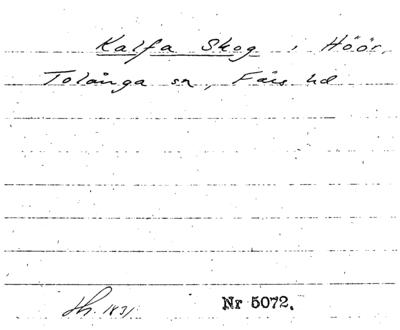 Kalfa Skog i Höör,
Tolånga sn, Färs hd
1831. Nr 5072.